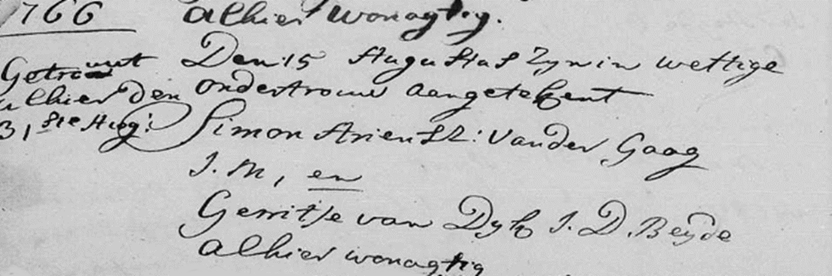 1766
alhier wonagtig.
Getrouwt
alhier den
31ste Aug:
Den 15 Augustus Zyn in wettige
ondertrouw aangetekent
Simon Ariensz: Vander Gaag
J. M, en
Gerritje van Dyk J. D. Beyde
alhier wonagtig